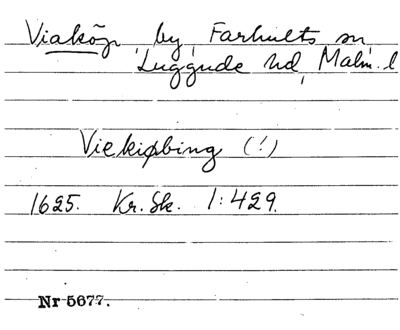 Viaköp, by, Farhults sn
Luggude hd, Malm. l
Viekiøbing (!)
1625. Kr. Sk. 1:429.
Nr 5677.